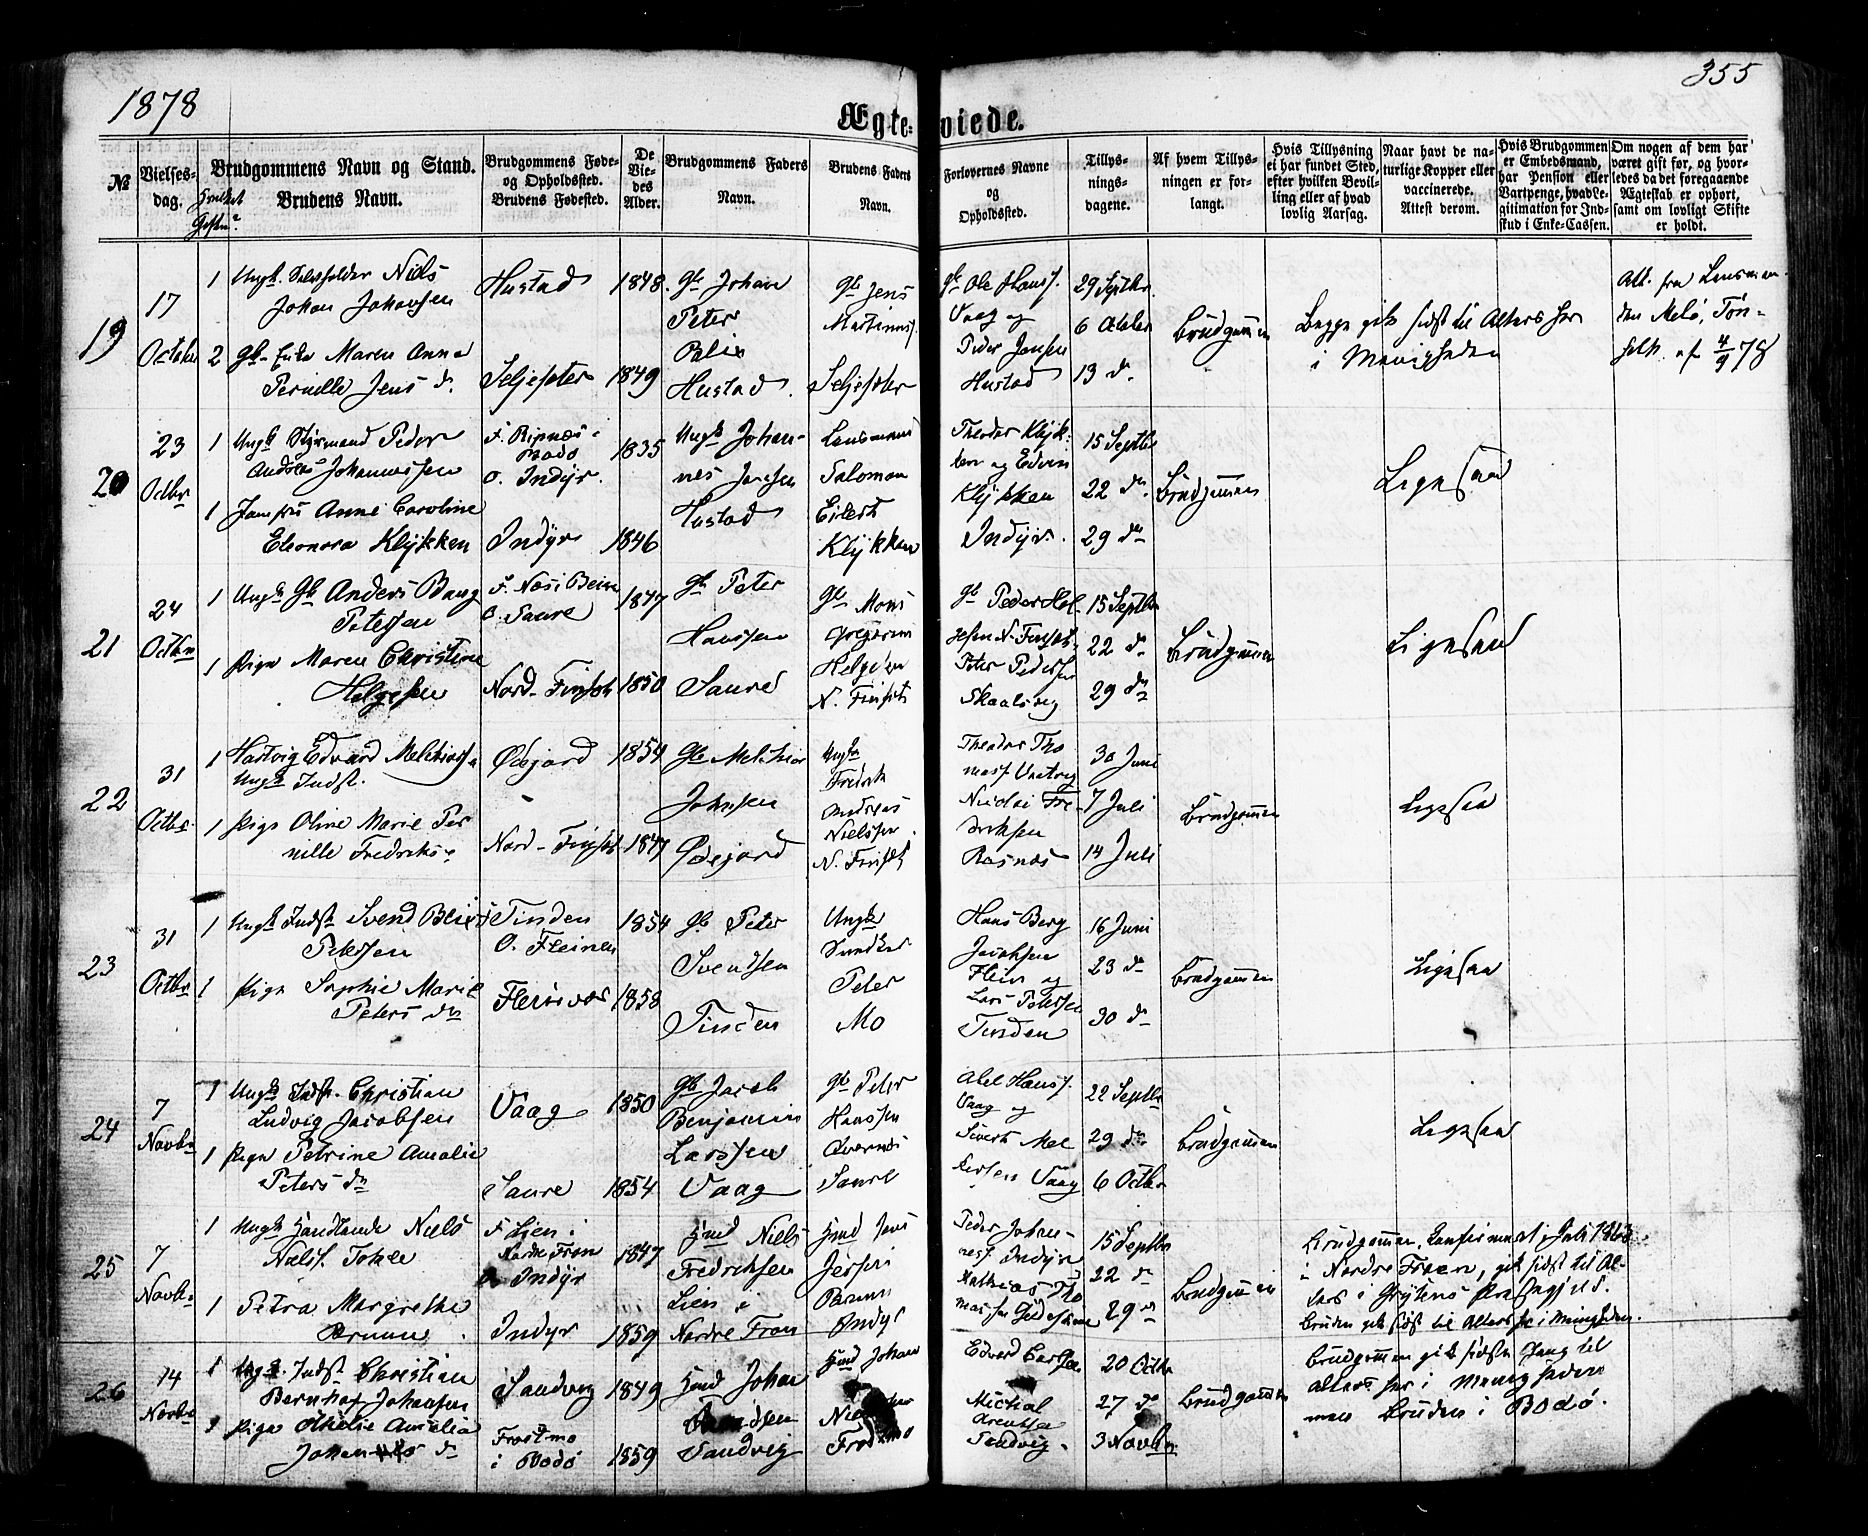 1878
355
Ægte-viede.
№
Vielses-
dag.
Hvilket
Gift?
Brudgommens Navn og Stand.
Brudens Navn.
Brudgommens Føde-
og Opholdssted.
Brudens Fødested.
De
Vie-
des
Alder.
Brudgommens Faders
Navn.
Brudens Faders
Navn.
Forlovernes Navne
og
Opholdssted.
Tillys-
nings-
dagene.
Af hvem Tillys-
ningen er for-
langt.
Hvis Tillysning
ei har fundet Sted,
efter hvilken Bevil-
ling eller af hvad
lovlig Aarsag.
Naar havt de na-
turlige Kopper eller
vaccinerede.
Attest derom.
Hvis Brudgommen
er Embedsmand,
har Pension eller
Vartpenge, hvad Le-
gitimation for Ind-
skud i Enke-Cassen.
Om nogen af dem har
været gift før, og hvor-
ledes da det foregaaende
Ægteskab er ophørt,
samt om lovligt Skifte
er holdt.
19
17
October
1 Ungk. Selvfolder Niels
Johan Johansen
2 Gb. Enke Maren Anna
Pernille Jens d.
Hustad
Seljesæter
1848.
1849
Gb Johan
Peter
Hustad
Gb Jens
Martinus
Seljesæter
Gb Ole Hanss.
Vaag og
Peder Jensen
Hustad
29 Septbr.
6 October
13 d.
Brudgommen
Begge gik sidst til Alters her
i Menigheden
Att. fra Lensman-
den Melø,
af 4/9 78
20
23
Octbr
1 Ungk Styrmand Peder
Andreas Johannessen
1 Jomfru Anne Caroline
Eleonora Klykken
F. Ripnæs i
Bodø
O. Indyr.
Indyr
1835
1846
Ungk Johan-
nes Jensen
Hustad
Lensmand
Salomon
Eilert
Klykken
Theodor Klyk-
ken og Edvin
Klykken
Indyr.
15 Septbr
22 d
29 d
Brudgommen
Ligesaa
21
24
Octbr
1 Ungk Gb Anders Bang
Petersen
1 Pige Maren Christine
Helgesen
F. Næs i Beiern
O. Saure
Nord-Finset
1847
1850
Gb Peter
Hanssen
Saure
Gb Mons
Gregorius
Helgesen
N. Finset
Gb Peder Hel-
gesen N. Finset
Peter Peders
Skaalsvig
15 Septbr
22 d
29 d
Brudgommen
Ligesaa
22
31
Octbr.
1 Hartvig Edvard Melchiors
Ungk Indst.
1 Pige Oline Marie Per
nille Fredriks
Ødejord
Nord-Finset
1854
1847
Gb Melchior
Johnsen
Ødejord
Ungk
Fredrik
Andreas
Nielssen
N. Finset
Theodor Tho
mass
Nicolai Fre-
driksen
Rasnæs
30 Juni
7 Juli
14 Juli
Brudgommen
Ligesaa
23
31
Octbr
1 Ungk Indst Svend Bleis
Petersen
1 Pige Sophie Marie
Peters d
Tinden
O. Fleina
Fleinvær
1854
1858
Gb Peter
Svendsen
Tinden
Ungk
Peter
Mo
Hans Berg
Jacobsen
Flein og
Lars Petersen
Tinden
16 Juni
23 d
30 d
Brudgommen
Ligesaa
24
7
Novbr
1 Ungk Indst. Christian
Ludvig Jacobsen
1 Pige Petrine Amalie
Peters d
Vaag
Saure
1850
1854
Gb Jacob
Benjamin
Larssen
Vaag
Gb Peter
Hanssen
Saure
Abel Hanss.
Vaag og
Sivert Mel
Vaag
22 Septbr
29 d
6 Octbr
Brudgommen
Ligesaa
25
7
Novbr
1 Ungk Handlende Niels
Niels. Tokle
1 Petra Margrethe
F Lien i
Nordre Fron
O. Indyr
Indyr
1847
1859
Hmd Niels
Fredriksen
Lien i
Nordre Fron
Hmd Jens
Indyr
Peder Johan-
ness. Indyr
Mathias Tho
massen Gildeskaal
15 Septbr
22 d
29 d
Brudgommen
Brudgommen, Confirmeret i Juli 1863
i Nordre Froen, gik sidst til Al-
ters i Grytens Præstegjeld.
Bruden gik sidst til Alters her i Menigheden.
26
14
Novbr
1 Ungk. Indst Christian
Bernhof Johansen
1 Pige Othelie Aurelia
Johannes d
Sandvig
Frostmo
i Bodø
1849
1859
Hmd Johan
Sandvig
Hmd Johan
Edvard Carlsen
Michal
Arentsen
Sandvig.
20 Octbr
27 d
3 Novbr
Brudgommen
Brudgommen gik sidste Gang til
Alters her i Menigheden
men Bruden i Bodø.